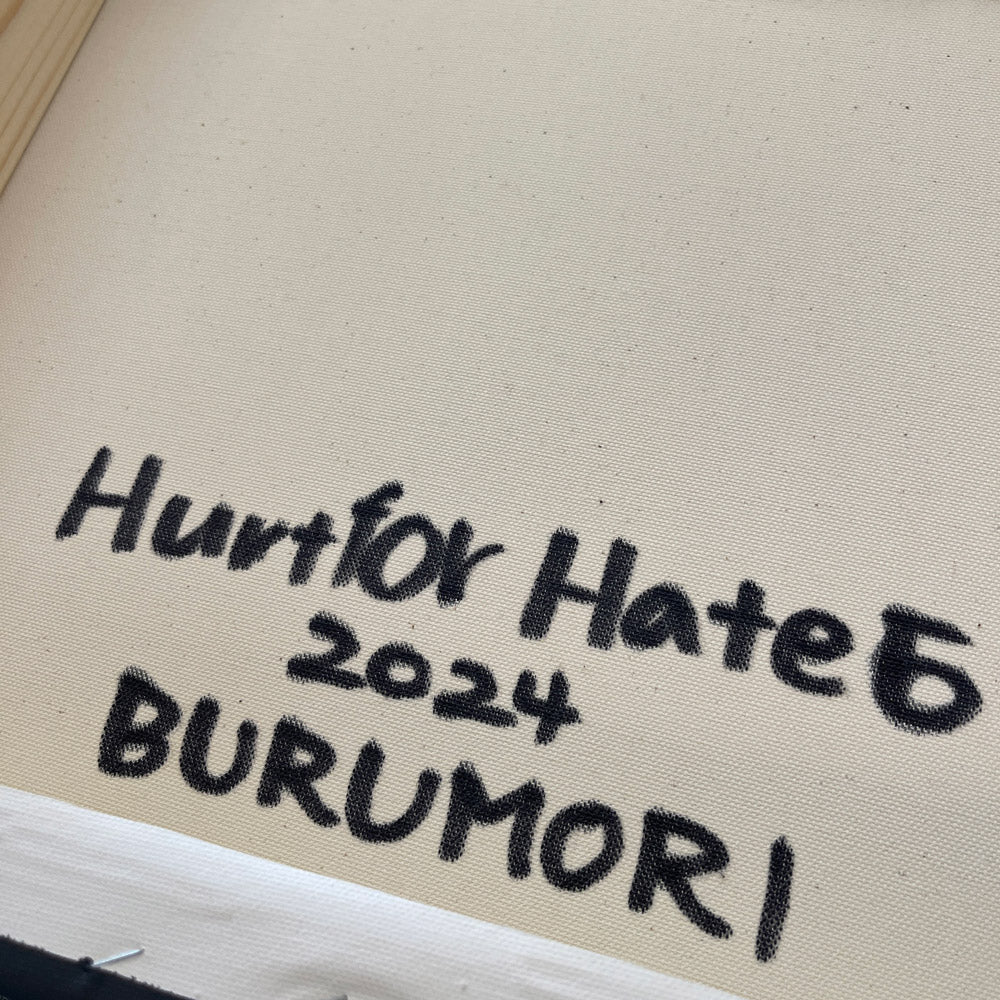 Hurt for Hate
2024
BURUMORI